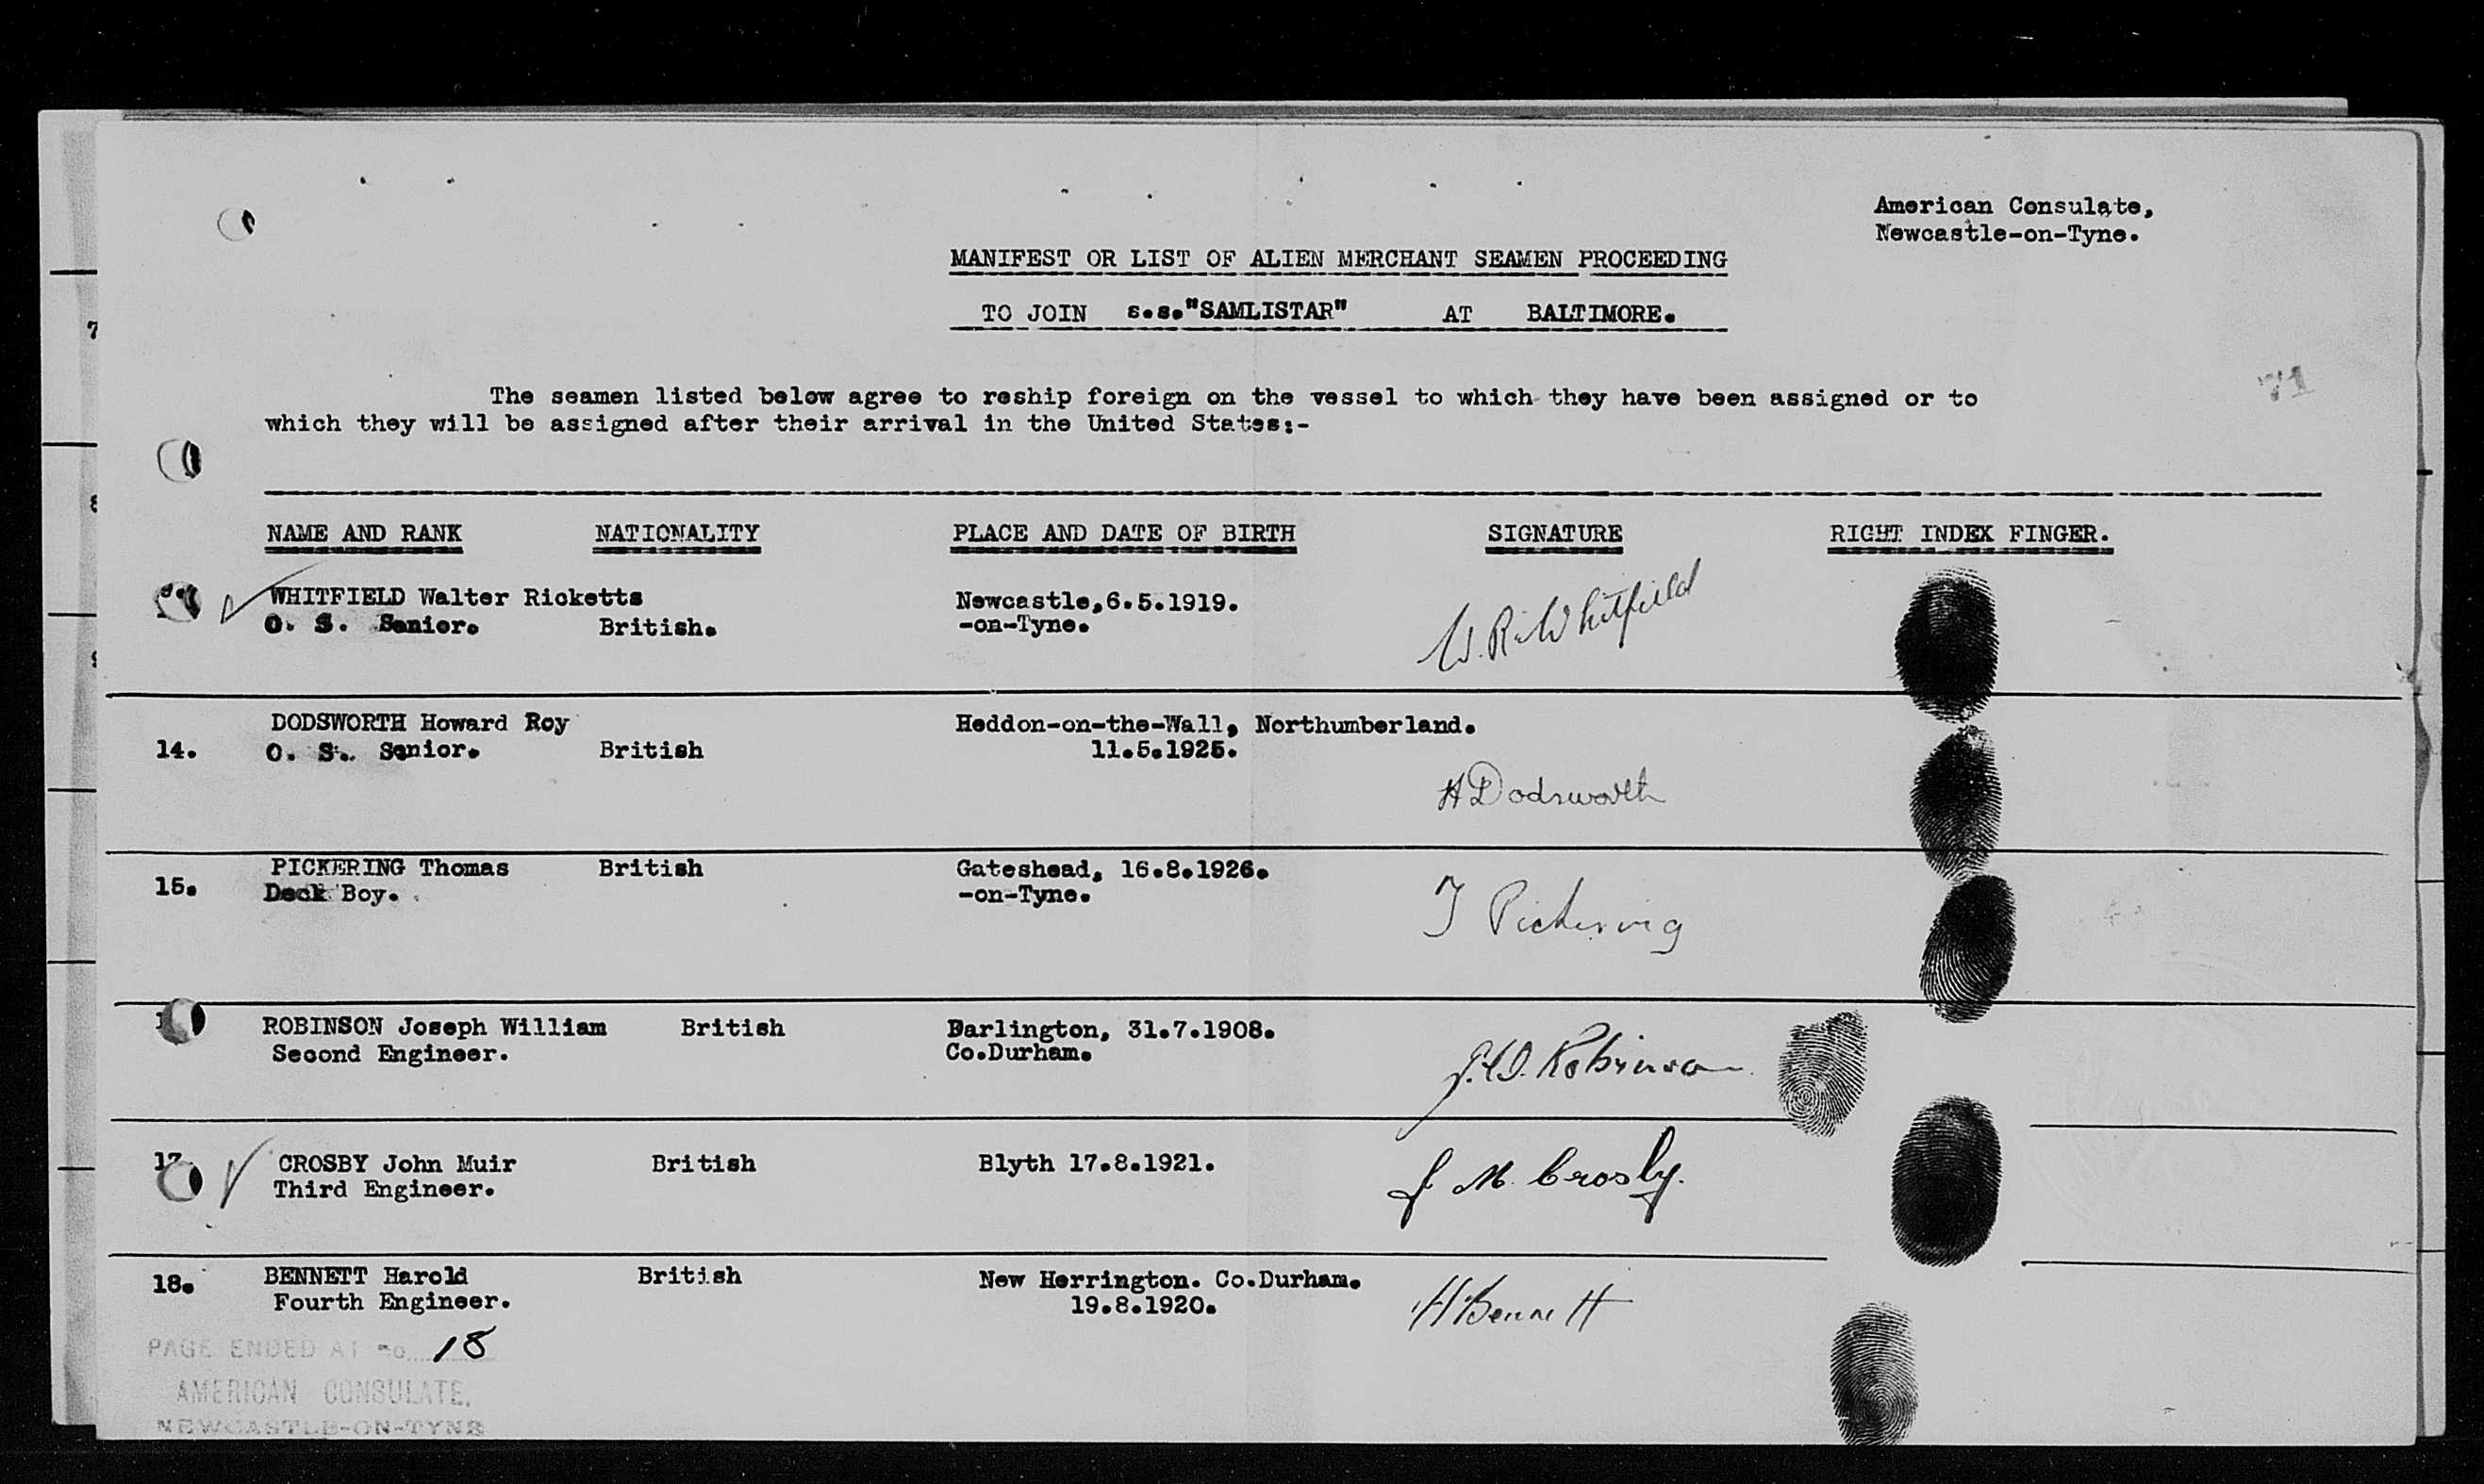 American Consulate,
Newcastle-on-Tyne.
MANIFEST OR LIST OF ALIEN MERCHANT SEAMEN PROCEEDING
TO JOIN s.s."SAMLISTAR" AT BALTIMORE.
71
The seamen listed below agree to reship foreign on the vessel to which they have been assigned or to
which they will be assigned after their arrival in the United States:-
NAME AND RANK NATIONALITY PLACE AND DATE OF BIRTH SIGNATURE RIGHT INDEX FINGER.
WHITFIELD Walter Ricketts Newcastle,6.5.1919. W.R.Whitfield
O. S. Senior. British. -on-Tyne.
DODSWORTH Howard Roy Heddon-on-the-Wall, Northumberland.
14. O. S. Senior. British 11.5.1925.
H Dodsworth
PICKERING Thomas British Gateshead, 16.8.1926.
15. Deck Boy. -on-Tyne.
T Pickering
ROBINSON Joseph William British Darlington, 31.7.1908.
Second Engineer. Co.Durham. J.W. Robinson
17. CROSBY John Muir British Blyth 17.8.1921.
Third Engineer. J M. Crosby.
18. BENNETT Harold British New Herrington. Co.Durham.
Fourth Engineer. 19.8.1920. H Bennett
PAGE ENDED AT no 18
AMERICAN CONSULATE,
NEWCASTLE-ON-TYNE
7
8
9